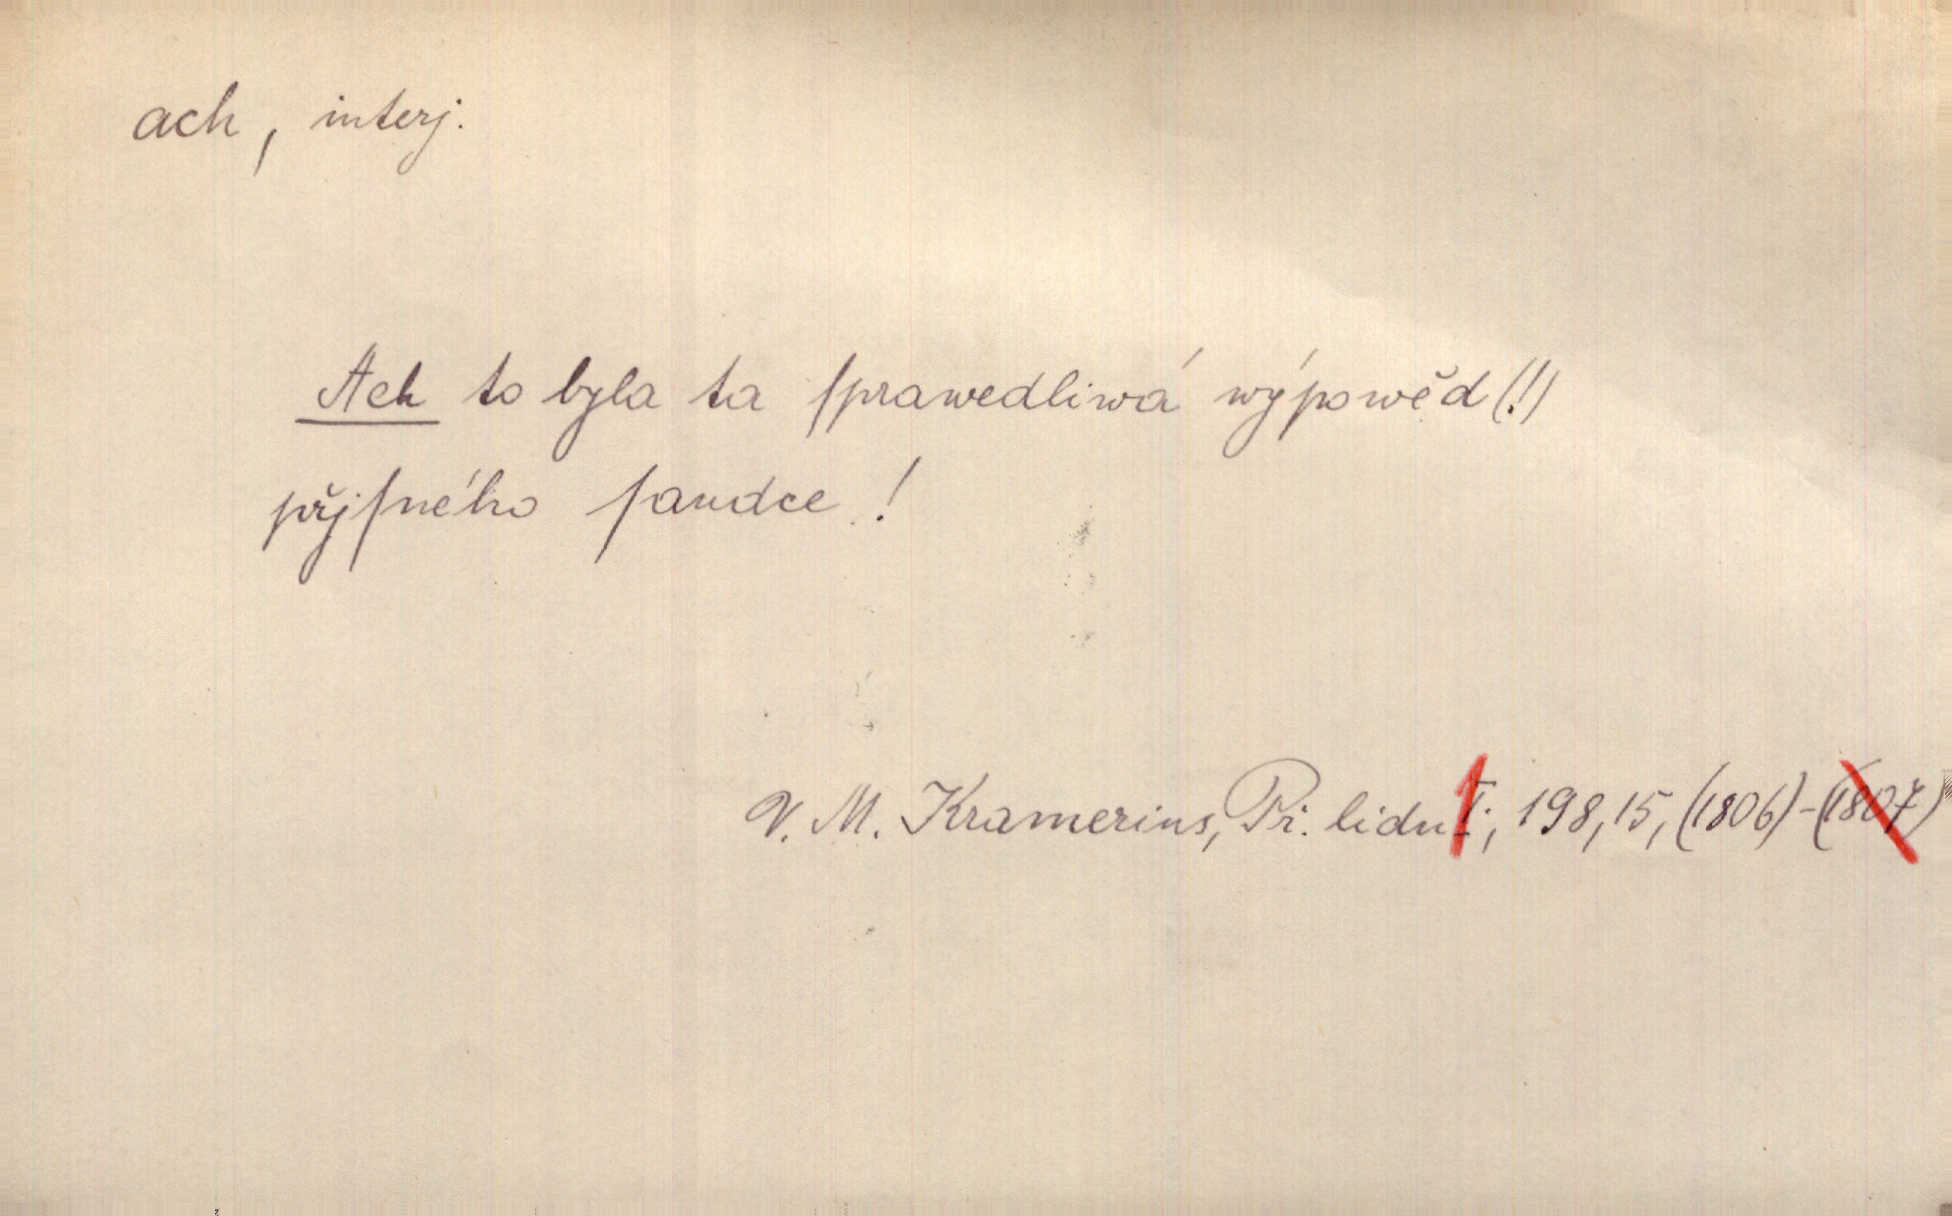 ach, interj.
Ach to byla ta ſprawedliwá wýpowěd(!)
přjſného ſaudce!
V. M. Kramerius, Př. lidu 1, 198, 15, (1806)-(1807)